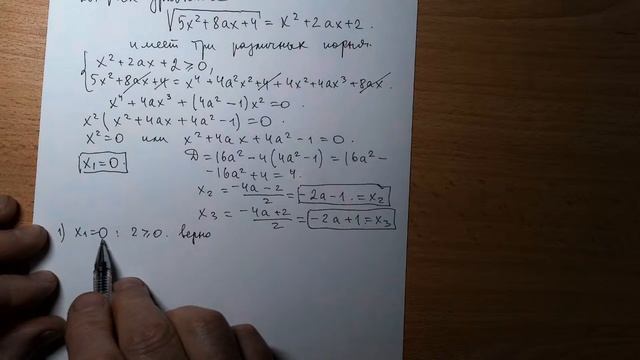 √5x²+8ax+4 = x²+2ax+2.
имеет три различных корня.
{ x²+2ax+2⩾0,
5x²+8ax+4 = x⁴+4a²x²+4+4x²+4ax³+8ax.
x⁴+4ax³+(4a²-1)x²=0.
x²(x²+4ax+4a²-1)=0.
x²=0 или x²+4ax+4a²-1=0.
x₁=0. D=16a²-4(4a²-1)=16a²-
-16a²+4=4.
x₂ = (-4a-2)/2 = -2a-1. = x₂
x₃ = (-4a+2)/2 = -2a+1 = x₃
1) x₁=0: 2⩾0. верно